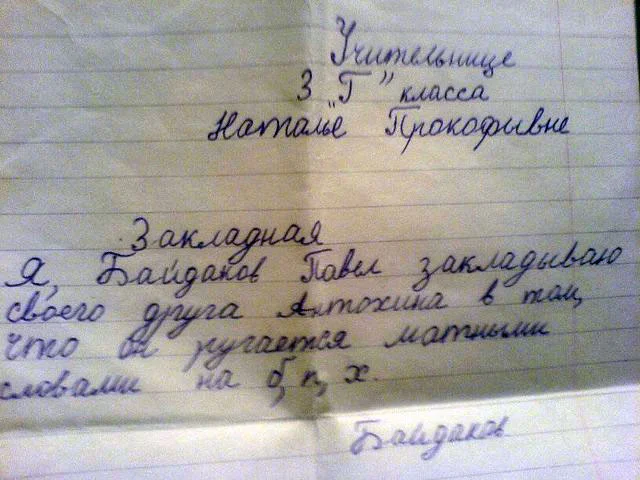 Учительнице
3 "Г" класса
Наталье Прокофьвне
Закладная
Я, Байдаков Павел закладываю
своего друга Антохина в том,
что он ругается матными
словами на б, п, х.
Байдаков